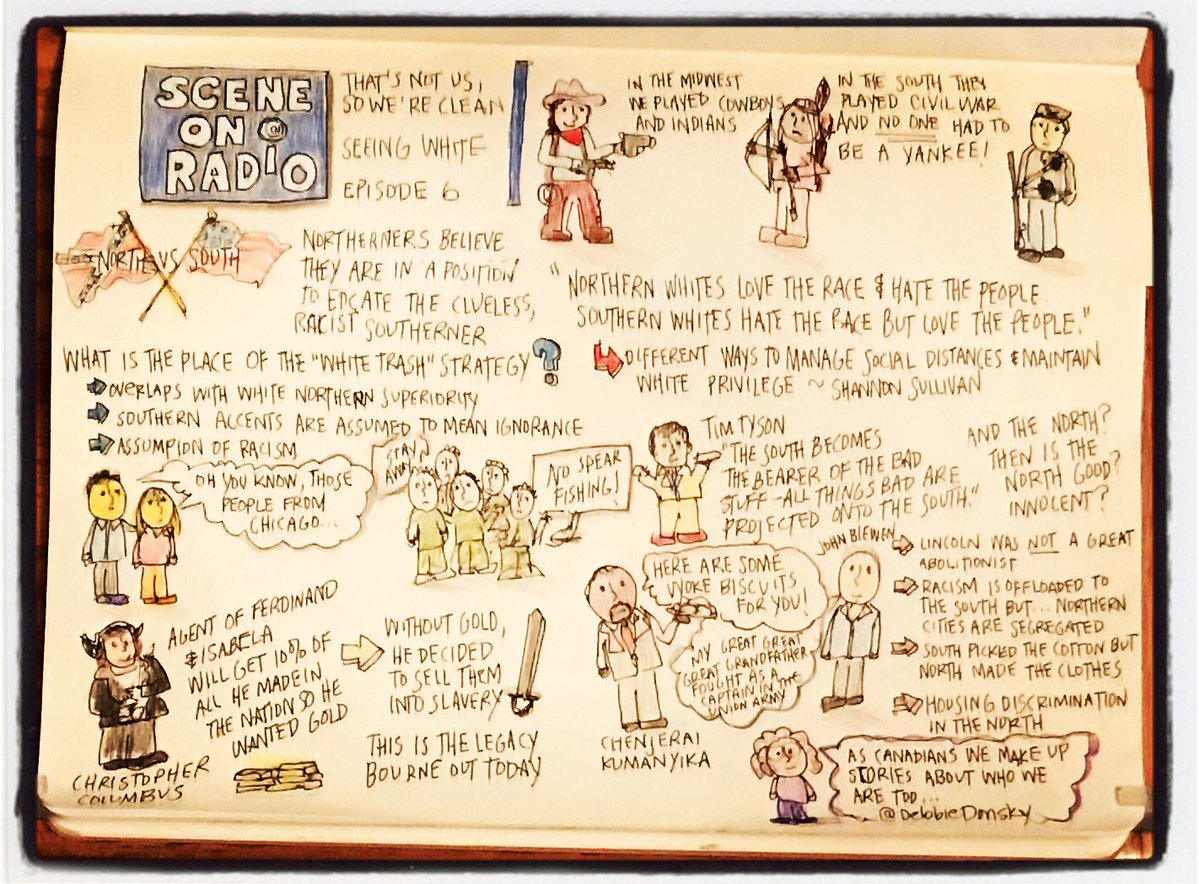 SCENE
ON
RADIO
THAT'S NOT US,
SO WE'RE CLEAN
SEEING WHITE
EPISODE 6
IN THE MIDWEST
WE PLAYED COWBOYS
AND INDIANS
IN THE SOUTH THEY
PLAYED CIVIL WAR
AND NO ONE HAD TO
BE A YANKEE!
NORTH VS SOUTH
NORTHERNERS BELIEVE
THEY ARE IN A POSITION
TO EDCATE THE CLUELESS,
RACIST SOUTHERNER
"NORTHERN WHITES LOVE THE RACE & HATE THE PEOPLE.
SOUTHERN WHITES HATE THE RACE BUT LOVE THE PEOPLE."
DIFFERENT WAYS TO MANAGE SOCIAL DISTANCES & MAINTAIN
WHITE PRIVILEGE ~ SHANNON SULLIVAN
WHAT IS THE PLACE OF THE "WHITE TRASH" STRATEGY?
OVERLAPS WITH WHITE NORTHERN SUPERIORITY
SOUTHERN ACCENTS ARE ASSUMED TO MEAN IGNORANCE
ASSUMPION OF RACISM
OH YOU KNOW, THOSE
PEOPLE FROM
CHICAGO...
STAY
NO SPEAR
FISHING!
TIM TYSON
"THE SOUTH BECOMES
THE BEARER OF THE BAD
STUFF - ALL THINGS BAD ARE
PROJECTED ONTO THE SOUTH."
AND THE NORTH?
THEN IS THE
NORTH GOOD?
INNOCENT?
JOHN BIEWEN
LINCOLN WAS NOT A GREAT
ABOLITIONIST
RACISM IS OFFLOADED TO
THE SOUTH BUT... NORTHERN
CITIES ARE SEGREGATED
SOUTH PICKED THE COTTON BUT
NORTH MADE THE CLOTHES
HOUSING DISCRIMINATION
IN THE NORTH
HERE ARE SOME
WOKE BISCUITS
FOR YOU!
MY GREAT GREAT
GREAT GRANDFATHER
FOUGHT AS A
CAPTAIN IN THE
UNION ARMY
CHENJERAI
KUMANYIKA
AGENT OF FERDINAND
& ISABELA
WILL GET 10% OF
ALL HE MADE IN
THE NATION SO HE
WANTED GOLD
WITHOUT GOLD,
HE DECIDED
TO SELL THEM
INTO SLAVERY
THIS IS THE LEGACY
BOURNE OUT TODAY
CHRISTOPHER
COLUMBUS
AS CANADIANS WE MAKE UP
STORIES ABOUT WHO WE
ARE TOO...
@DebbieDonsky